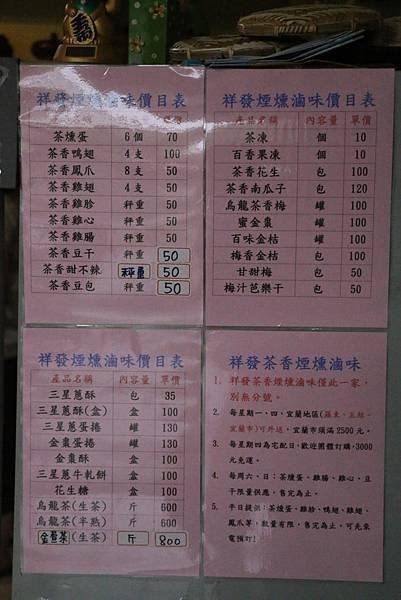 祥發煙燻滷味價目表
內容量 單價
茶燻蛋 6個 70
茶香鴨翅 4支 100
茶香鳳爪 8支 50
茶香雞翅 4支 50
茶香雞胗 秤重 50
茶香雞心 秤重 50
茶香雞腸 秤重 50
茶香豆干 秤重 50
茶香甜不辣 秤重 50
茶香豆包 秤重 50
祥發煙燻滷味價目表
產品名稱 內容量 單價
茶凍 個 10
百香果凍 個 10
茶香花生 包 100
茶香南瓜子 包 120
烏龍茶香梅 罐 100
蜜金棗 罐 100
百味金桔 罐 100
梅香金桔 包 100
甘甜梅 包 50
梅汁芭樂干 包 50
祥發煙燻滷味價目表
產品名稱 內容量 單價
三星蔥酥 包 35
三星蔥酥(盒) 盒 100
三星蔥蛋捲 罐 130
金棗蛋捲 罐 130
金棗酥 盒 100
三星蔥牛軋餅 盒 100
花生糖 盒 100
烏龍茶(生茶) 斤 600
烏龍茶(半熟) 斤 600
金萱茶(生茶) 斤 800
祥發茶香煙燻滷味
1. 祥發茶香煙燻滷味僅此一家，
別無分號。
2. 每星期一、四，宜蘭地區(羅東、五結、
宜蘭市)可外送，宜蘭市須滿2500元。
3. 每星期四為宅配日，歡迎團體訂購，3000
元免運。
4. 每周六、日：茶燻蛋、雞腸、雞心、豆
干限量供應，售完為止。
5. 平日提供：茶燻蛋、雞胗、鴨翅、雞翅、
鳳爪等，數量有限，售完為止，可先來
電預訂！